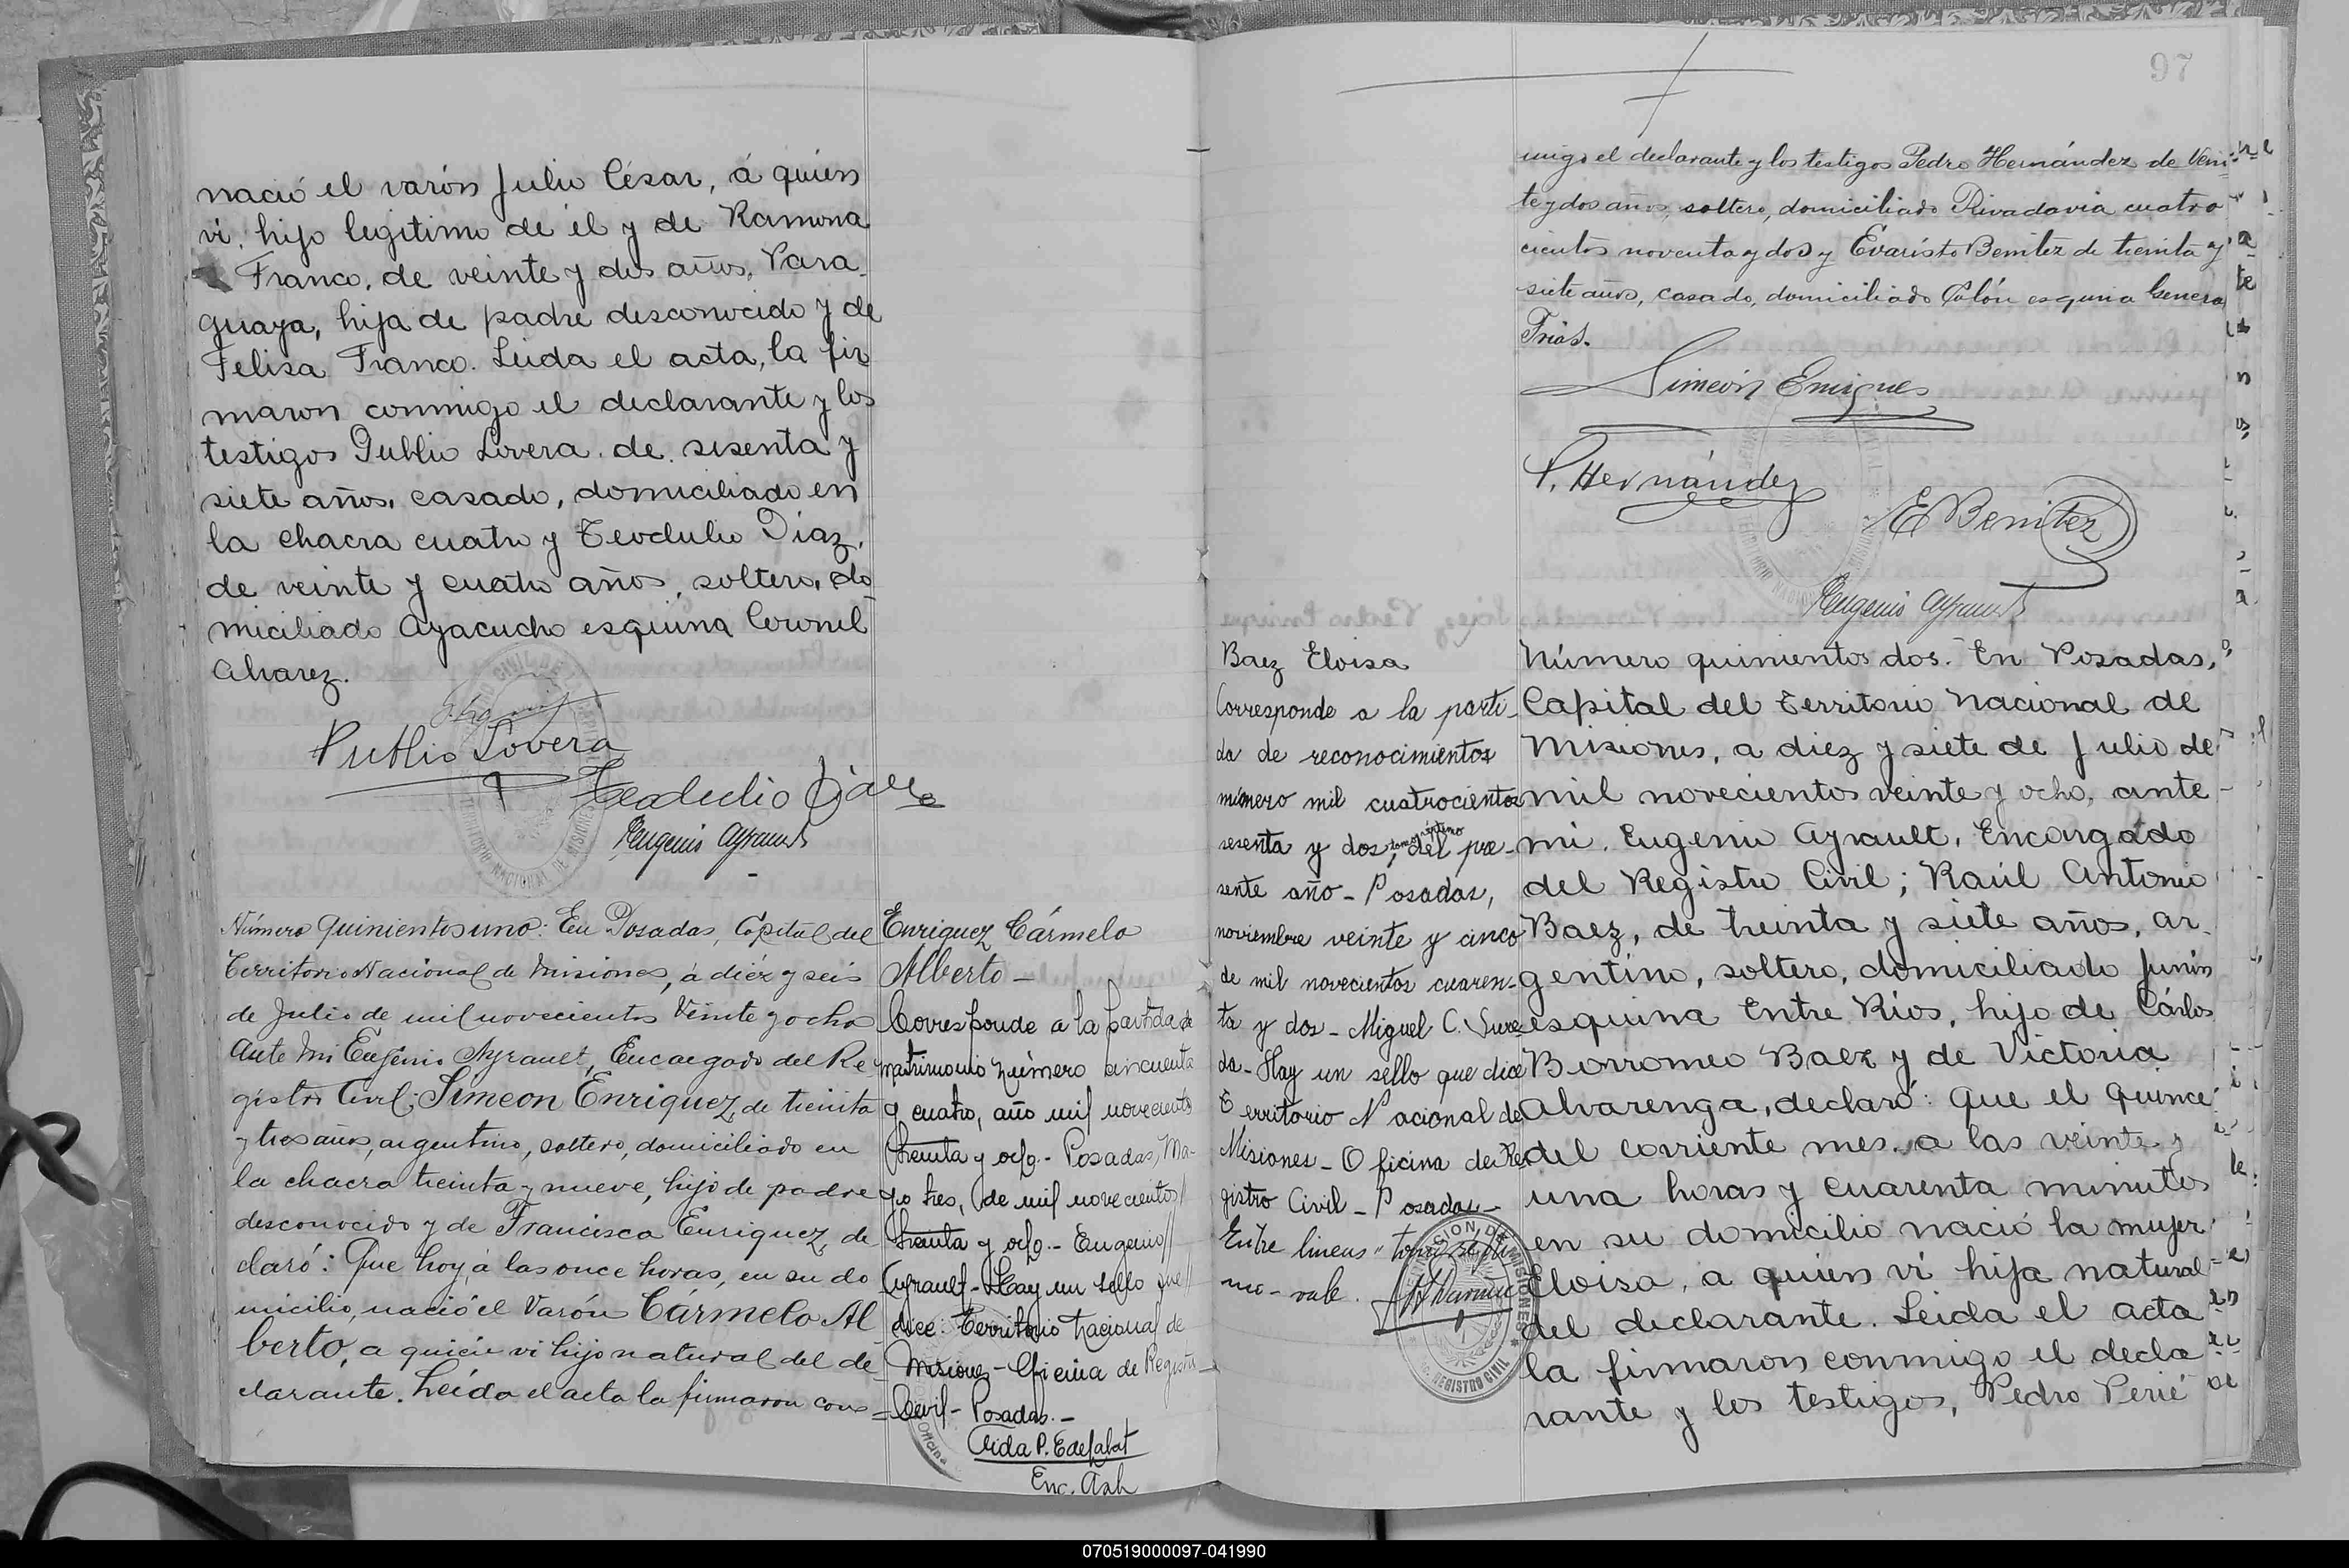 nació el varón Julio César, á quien
vi, hijo legitimo de él y de Ramona
Franco, de veinte y dos años, Para-
guaya, hija de padre desconocido y de
Felisa Franco. Leida el acta, la fir
maron conmigo el declarante y los
testigos Publio Lovera, de sesenta y
siete años, casado, domiciliado en
la chacra cuatro y Teodulio Diaz,
de veinte y cuatro años, soltero, do
miciliado Ayacucho esquina Coronel
Alvarez.
Publio Lovera
Teodulio Diaz
Eugenio Ayrault
Número quinientos uno: En Posadas, Capital del
Territorio Nacional de Misiones, á diéz y seis
de Julio de mil novecientos Veinte y ocho
Ante Mi Eugenio Ayrault, Encargado del Re
gistro Civil; Simeon Enriquez, de treinta
y tres años, argentino, soltero, domiciliado en
la chacra treinta y nueve, hijo de padre
desconocido y de Francisca Enriquez, de
claró: Que hoy, á las once horas, en su do
micilio, nació el Varón Cármelo Al
berto, a quién vi hijo natural del de
clarante. Leída el acta la firmaron con
Enriquez Cármelo
Alberto -
Corresponde a la partida de
matrimonio número cincuenta
y cuatro, año mil novecientos
treinta y ocho.- Posadas, Ma-
yo tres, de mil novecientos
treinta y ocho.- Eugenio
Ayrault - Hay un sello que
dice: Territorio Nacional de
Misiones - Oficina de Registro
Civil - Posadas.-
Enc.
97
migo el declarante y los testigos Pedro Hernández de Vein-
te y dos años, soltero, domiciliado Rivadavia cuatro
cientos noventa y dos y Evaristo Benitez de treinta y
siete años, casado, domiciliado Colón esquina General
Frias.
Simeón Enriques
P. Hernández
E Benitez
Eugenio Ayrault
Baez Eloisa
Corresponde a la parti-
da de reconocimientos
número mil cuatrocientos
sesenta y dos, tomo séptimo del pre-
sente año - Posadas,
noviembre veinte y cinco
de mil novecientos cuaren-
ta y dos - Miguel C.
da - Hay un sello que dice
Territorio Nacional de
Misiones - Oficina de Re
gistro Civil - Posadas -
Entre lineas "tomo septi
mo - vale.
Número quinientos dos. En Posadas,
Capital del Territorio Nacional de
Misiones, a diez y siete de Julio de
mil novecientos veinte y ocho, ante
mi, Eugenio Ayrault, Encargado
del Registro Civil; Raúl Antonio
Baez, de treinta y siete años, ar-
gentino, soltero, domiciliado Junín
esquina Entre Ríos, hijo de Cárlos
Borromeo Baez y de Victoria
Alvarenga, declaró: Que el quince
del corriente mes, a las veinte y
una horas y cuarenta minutos
en su domicilio nació la mujer
Eloisa, a quien vi hija natural
del declarante. Leida el acta
la firmaron conmigo el decla
rante y los testigos, Pedro Perié
070519000097-041990